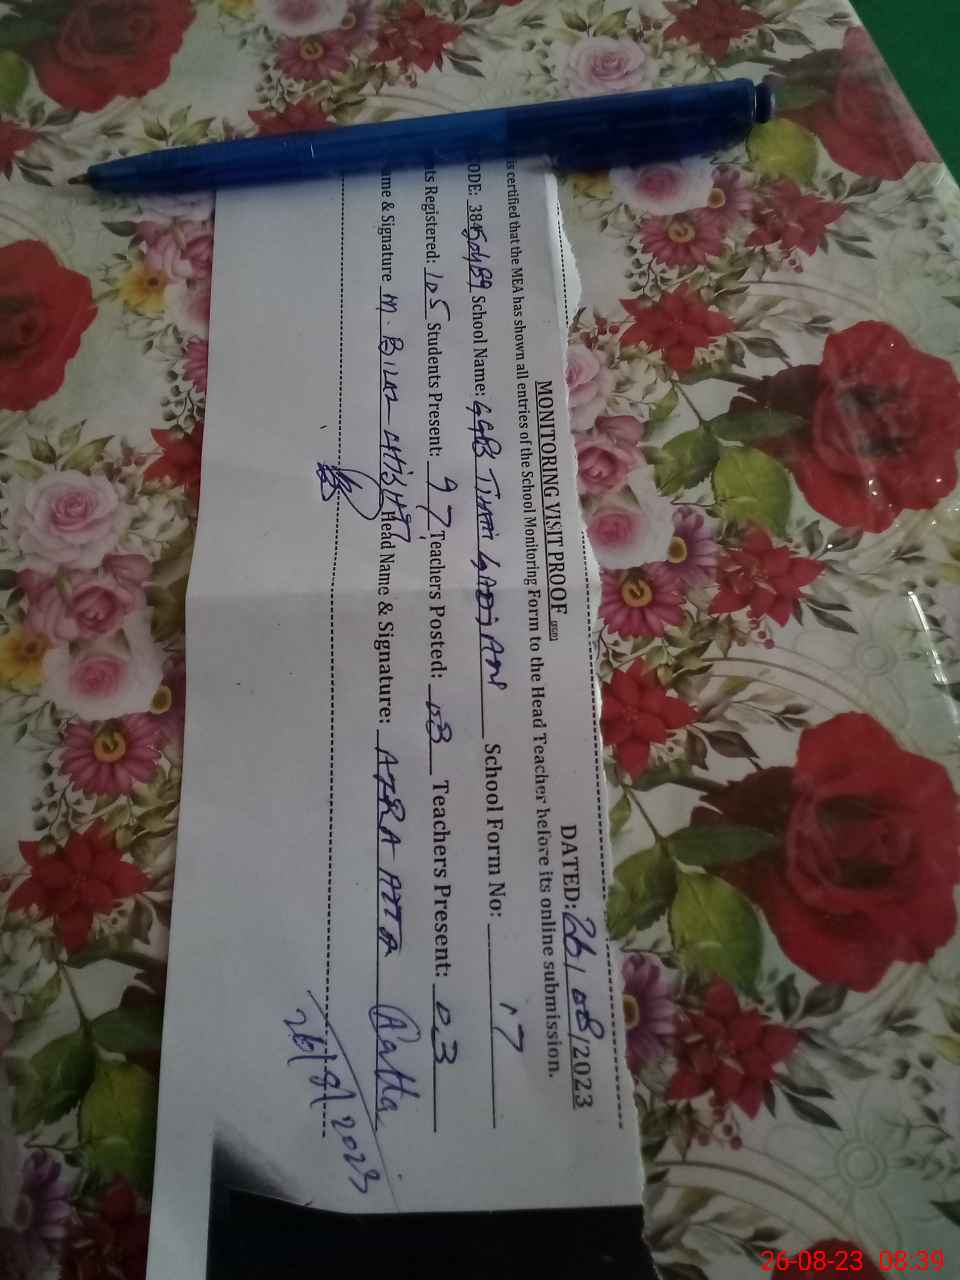 MONITORING VISIT PROOF DATED: 26/08/2023
is certified that the MEA has shown all entries of the School Monitoring Form to the Head Teacher before its online submission.
ODE: School Name: School Form No: 17
ts Registered: 105 Students Present: 97 Teachers Posted: 03 Teachers Present: 03
me & Signature M. BILAL Head Name & Signature: AZRA ATTA
26/8/2023
26-08-23 08:39